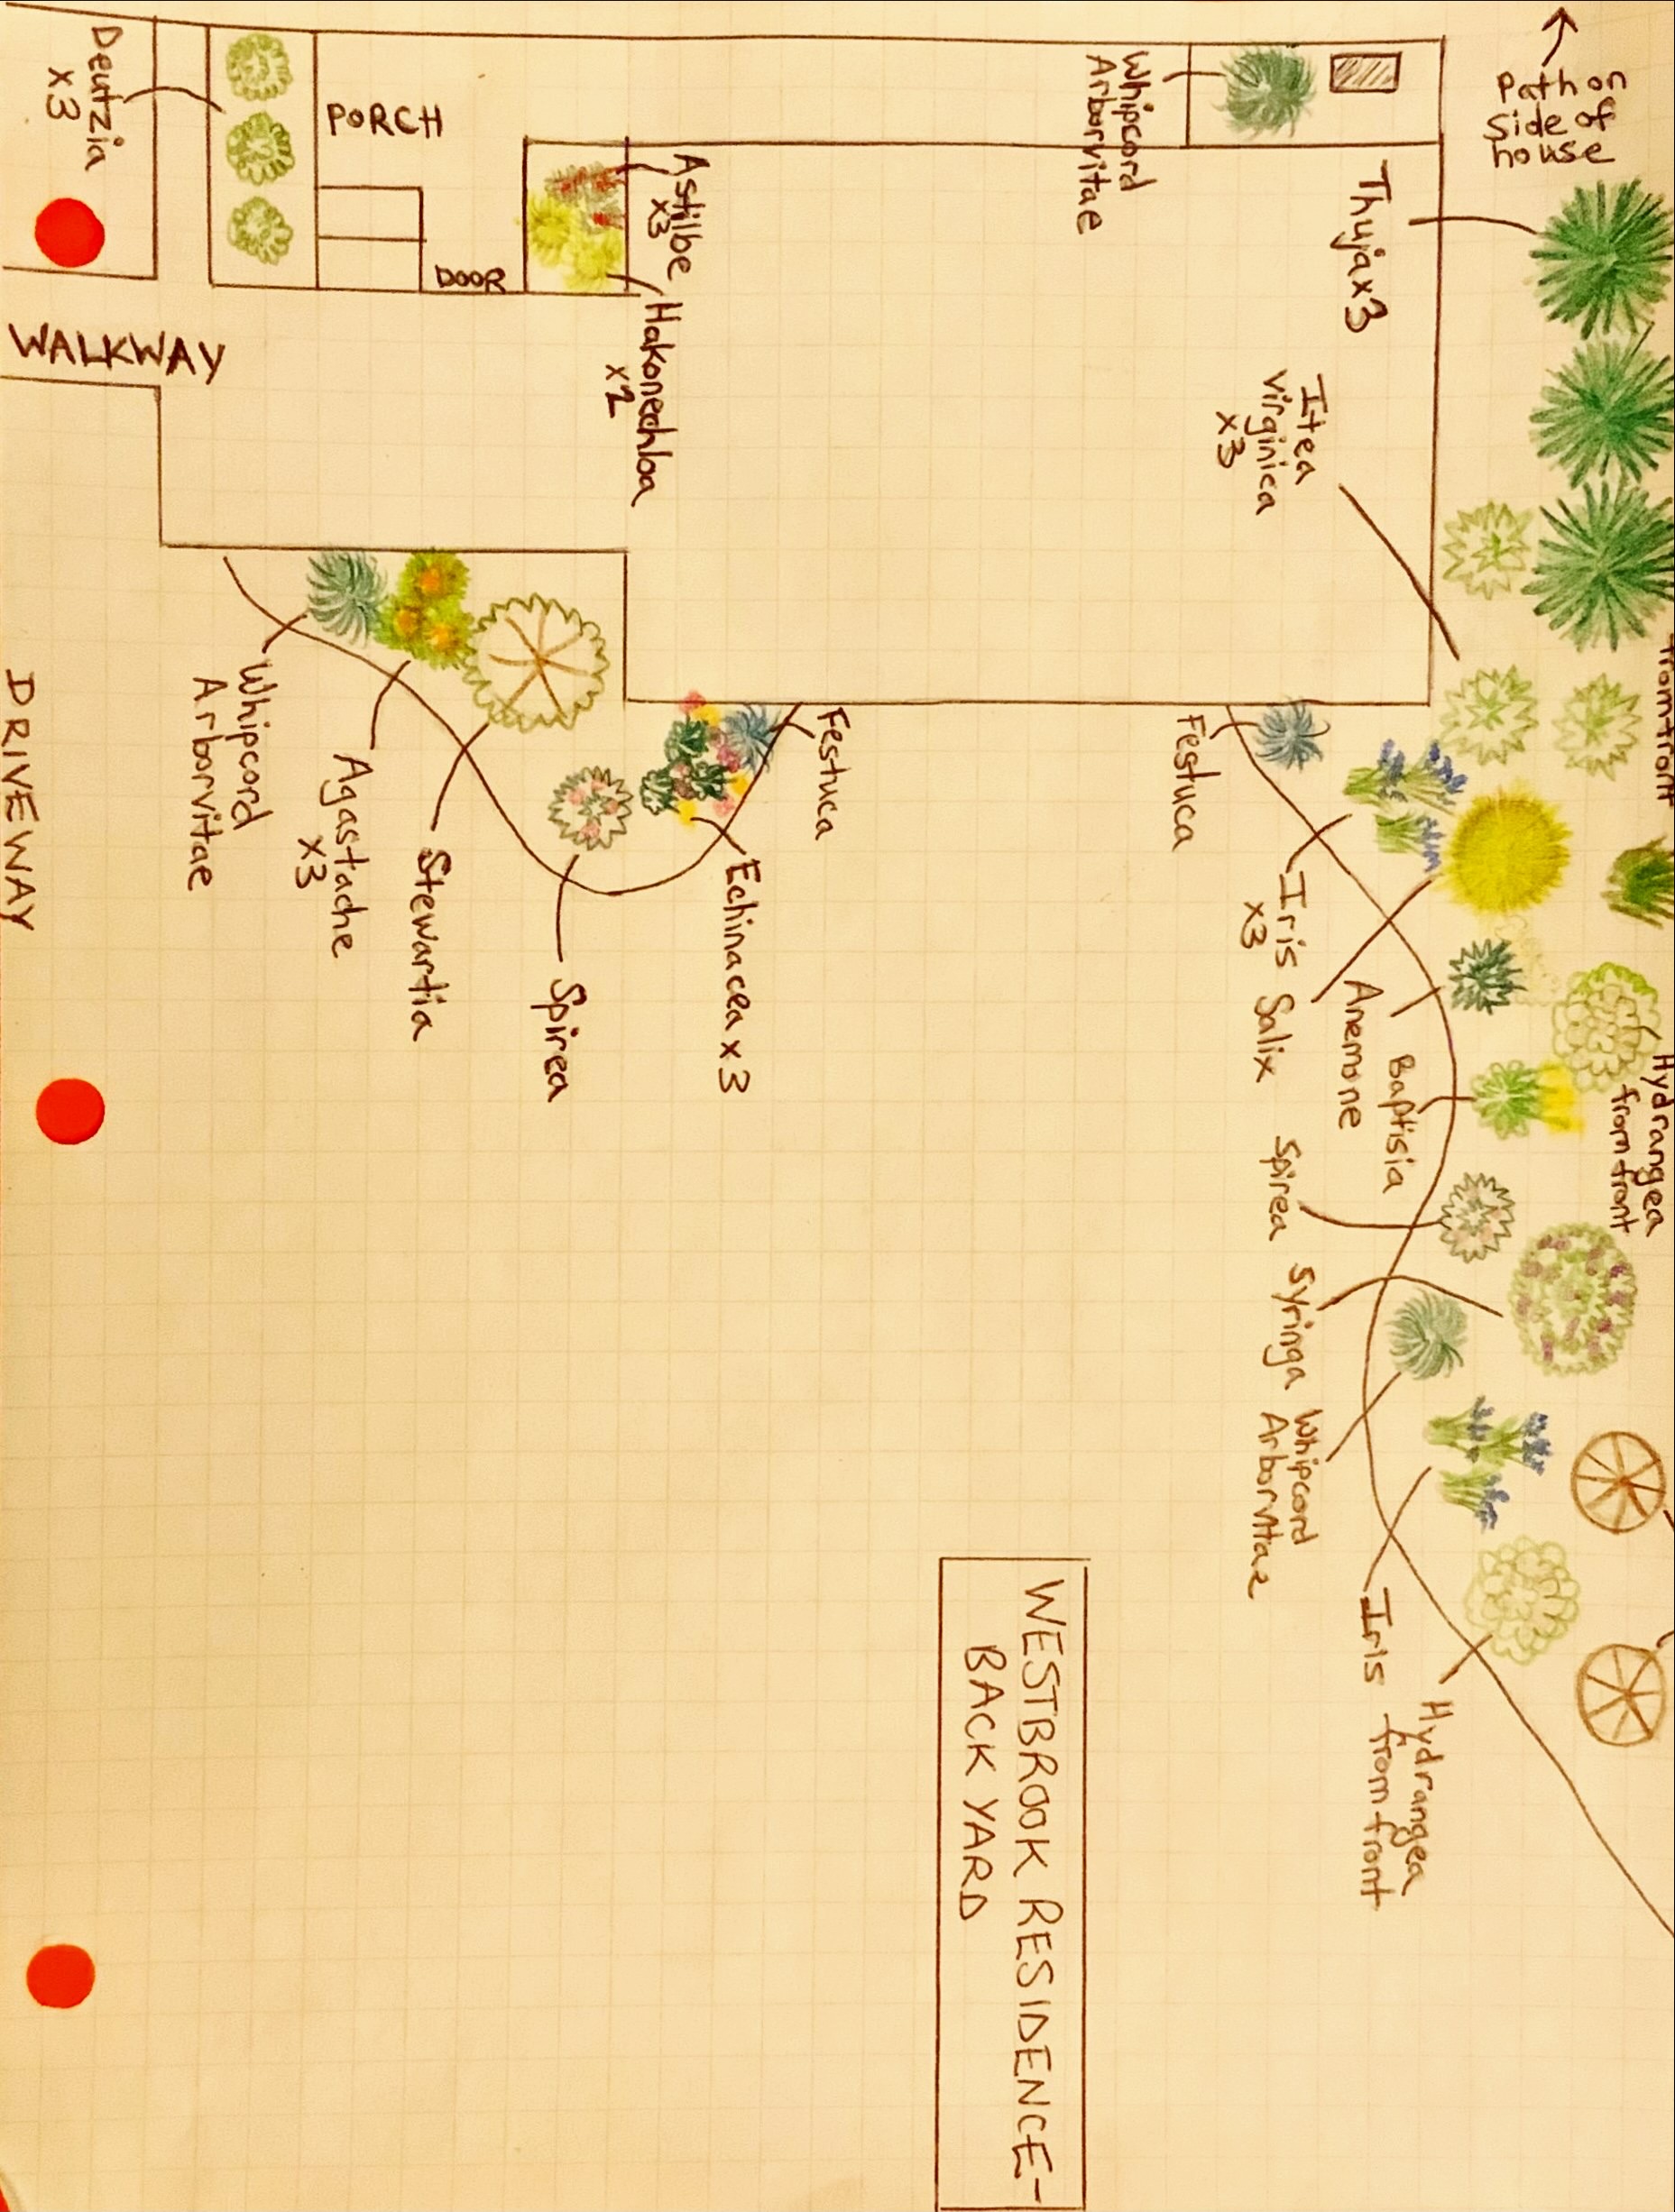 from front
Hydrangea
from front
Path on
Side of
house
Thuja x3
Itea
Virginica
x3
Iris
x3
Salix
Anemone
Baptisia
Spirea
Syringa
Whipcord
Arborvitae
Iris
Hydrangea
from front
Festuca
Whipcord
Arborvitae
WESTBROOK RESIDENCE-
BACK YARD
Festuca
Echinacea x3
Astilbe
x3
Hakonechloa
x2
Spirea
DOOR
PORCH
Stewartia
Agastache
x3
Whipcord
Arborvitae
Deutzia
x3
WALKWAY
DRIVEWAY